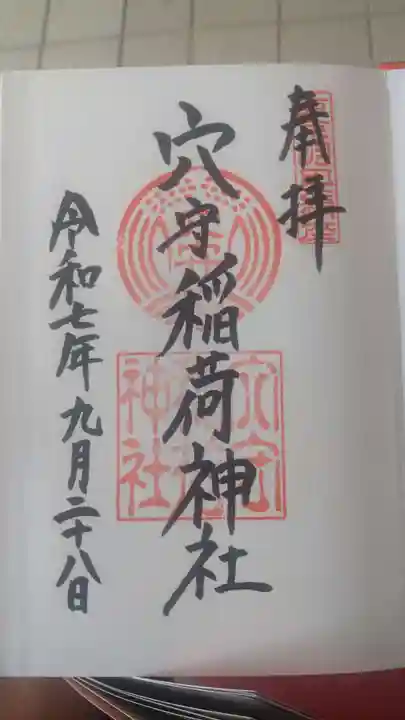 奉拝
穴守稲荷神社
令和七年九月二十八日